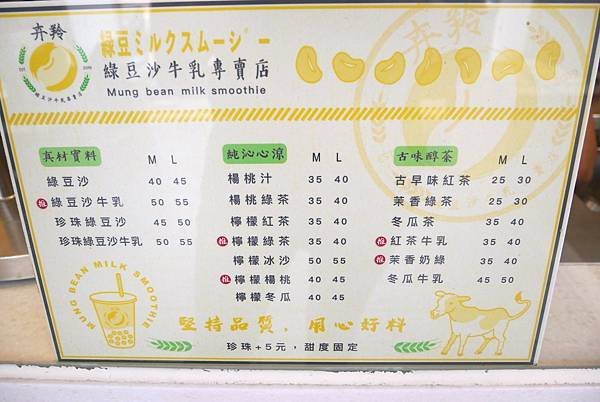 卉羚
綠豆ミルクスムージー
綠豆沙牛乳專賣店
Mung bean milk smoothie
真材實料 M L
綠豆沙 40 45
推 綠豆沙牛乳 50 55
珍珠綠豆沙 45 50
珍珠綠豆沙牛乳 50 55
純沁心涼 M L
楊桃汁 35 40
楊桃綠茶 35 40
檸檬紅茶 35 40
推 檸檬綠茶 35 40
檸檬冰沙 50 55
推 檸檬楊桃 40 45
檸檬冬瓜 40 45
古味醇茶 M L
古早味紅茶 25 30
茉香綠茶 25 30
冬瓜茶 35 40
推 紅茶牛乳 35 40
推 茉香奶綠 35 40
冬瓜牛乳 45 50
MUNG BEAN MILK SMOOTHIE
堅持品質，用心好料
珍珠+5元，甜度固定